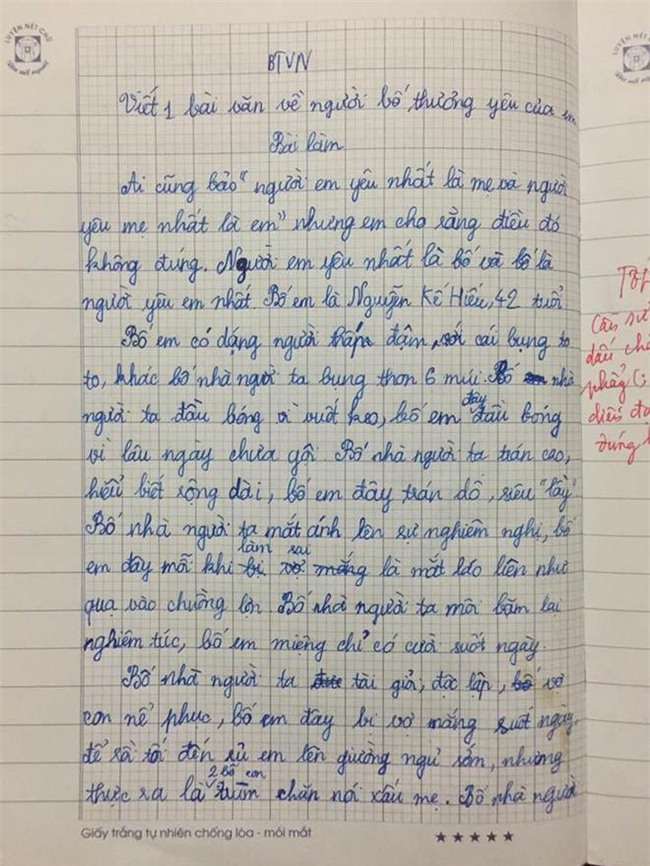 LUYỆN NÉT CHỮ
Rèn nết người
LUYỆN NÉT CHỮ
Rèn nết người
BTVN
Viết 1 bài văn về người bố thương yêu của em
Bài làm
Ai cũng bảo "người em yêu nhất là mẹ và người
yêu mẹ nhất là em" nhưng em cho rằng điều đó
không đúng. Người em yêu nhất là bố và bố là
người yêu em nhất. Bố em là Nguyễn Kế Hiếu, 42 tuổi
Bố em có dáng người thấp đậm, với cái bụng to
to, khác bố nhà người ta bụng thon 6 múi. Bố nhà
người ta đầu bóng vì vuốt keo, bố em đây đầu bóng
vì lâu ngày chưa gội. Bố nhà người ta trán cao,
hiểu biết rộng dài, bố em đây trán dô, siêu "lầy"
Bố nhà người ta mắt ánh lên sự nghiêm nghị, bố
em đây mỗi khi làm sai là mắt láo liên như
quạ vào chuồng lợn. Bố nhà người ta môi bặm lại
nghiêm túc, bố em miệng chỉ có cười suốt ngày.
Bố nhà người ta tài giỏi, độc lập, vợ
con nể phục, bố em đây bị vợ mắng suốt ngày,
để rồi tối đến rủ em lên giường ngủ sớm, nhưng
thực ra là 2 bố con trùm chăn nói xấu mẹ. Bố nhà người
Giấy trắng tự nhiên chống lóa - mỏi mắt
Tốt
Cần sử
dấu
phẩy (,
diễn đạt
đúng